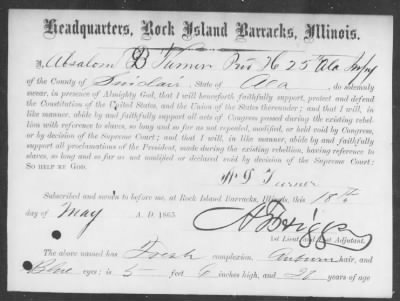 Headquarters, Rock Island Barracks, Illinois.
I, Absalom B Turner Priv H 25" Ala Infy
of the County of Sinclair, State of Ala, do solemnly
swear, in presence of Almighty God, that I will henceforth faithfully support, protect and defend
the Constitution of the United States, and the Union of the States thereunder; and that I will, in
like manner, abide by and faithfully support all acts of Congress passed during the existing rebellion
with reference to slaves, so long and so far as not repealed, modified, or held void by Congress,
or by decision of the Supreme Court; and that I will, in like manner, abide by and faithfully
support all proclamations of the President, made during the existing rebellion, having reference to
slaves, so long and so far as not modified or declared void by decision of the Supreme Court:
SO HELP ME GOD.
Turner
Subscribed and sworn to before me, at Rock Island Barracks, Illinois, this 18th
day of May A. D. 1865
1st Lieut. and Post Adjutant.
The above named has Fresh complexion, Auburn hair, and
Blue eyes; is 5 feet 6 inches high, and 28 years of age